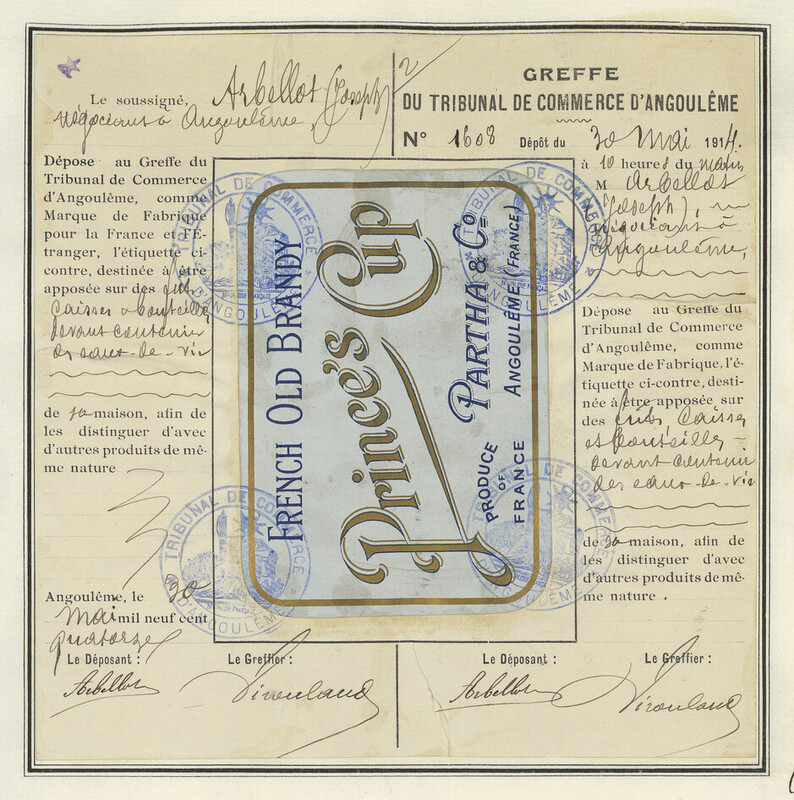 Le soussigné, Arbellot (Joseph)
négociant à Angoulême,
2
Dépose au Greffe du
Tribunal de Commerce
d'Angoulême, comme
Marque de Fabrique
pour la France et l'É-
tranger, l'étiquette ci-
contre, destinée à être
apposée sur des fûts
Caisses & bouteilles
devant contenir
des eaux-de-vie
de sa maison, afin de
les distinguer d'avec
d'autres produits de mê-
me nature
Angoulême, le 30
Mai mil neuf cent
quatorze
Le Déposant :
Le Greffier :
Arbellot
GREFFE
DU TRIBUNAL DE COMMERCE D'ANGOULÊME
N° 1608 Dépôt du 30 Mai 1914.
à 10 heures du matin
M Arbellot
(Joseph), 
négociant à
Angoulême,
Dépose au Greffe du
Tribunal de Commerce
d'Angoulême, comme
Marque de Fabrique, l'é-
tiquette ci-contre, desti-
née à être apposée sur
des fûts, Caisses
et bouteilles
devant contenir
des eaux-de-vie
de sa maison, afin de
les distinguer d'avec
d'autres produits de mê-
me nature.
Le Déposant :
Le Greffier :
Arbellot
FRENCH OLD BRANDY
Prince's Cup
PRODUCE OF FRANCE
PARTHA & Co
ANGOULÊME (FRANCE)
TRIBUNAL DE COMMERCE
D'ANGOULÊME
TRIBUNAL DE COMMERCE
D'ANGOULÊME
TRIBUNAL DE COMMERCE
D'ANGOULÊME
TRIBUNAL DE COMMERCE
D'ANGOULÊME